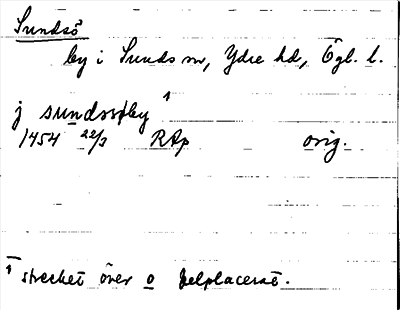 Sundsö
by i Sunds sn, Ydre hd, Ögl. l.
j sundzøby ¹
1454 22/3 RAp orig.
¹ strecket över o felplacerat.